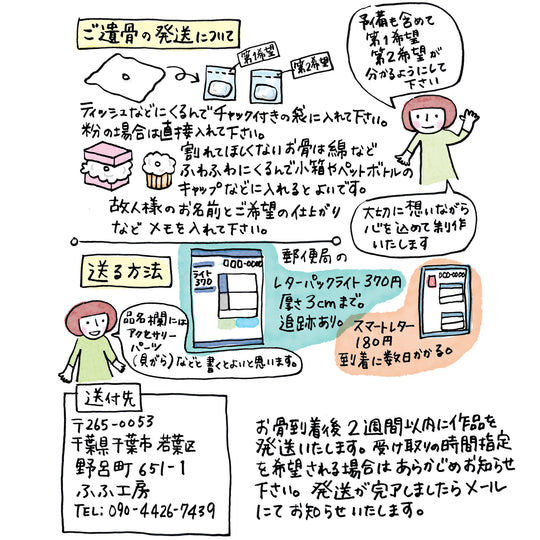 ご遺骨の発送について
第1希望
第2希望
予備も含めて
第1希望
第2希望が
分かるようにして
下さい
ティッシュなどにくるんでチャック付きの袋に入れて下さい。
粉の場合は直接入れて下さい。
割れてほしくないお骨は綿など
ふわふわにくるんで小箱やペットボトルの
キャップなどに入れるとよいです。
故人様のお名前とご希望の仕上がり
など メモを入れて下さい。
大切に想いながら
心を込めて制作
いたします
送る方法
ライト
370
郵便局の
レターパックライト 370円
厚さ3cmまで。
追跡あり。
スマートレター
180円
到着に数日かかる。
品名欄には
アクセサリー
パーツ
(貝がら)などと書くとよいと思います。
送付先
〒265-0053
千葉県千葉市若葉区
野呂町651-1
ふふ工房
TEL: 090-4426-7439
お骨到着後2週間以内に作品を
発送いたします。受け取りの時間指定
を希望される場合はあらかじめお知らせ
下さい。発送が完了しましたらメール
にてお知らせいたします。